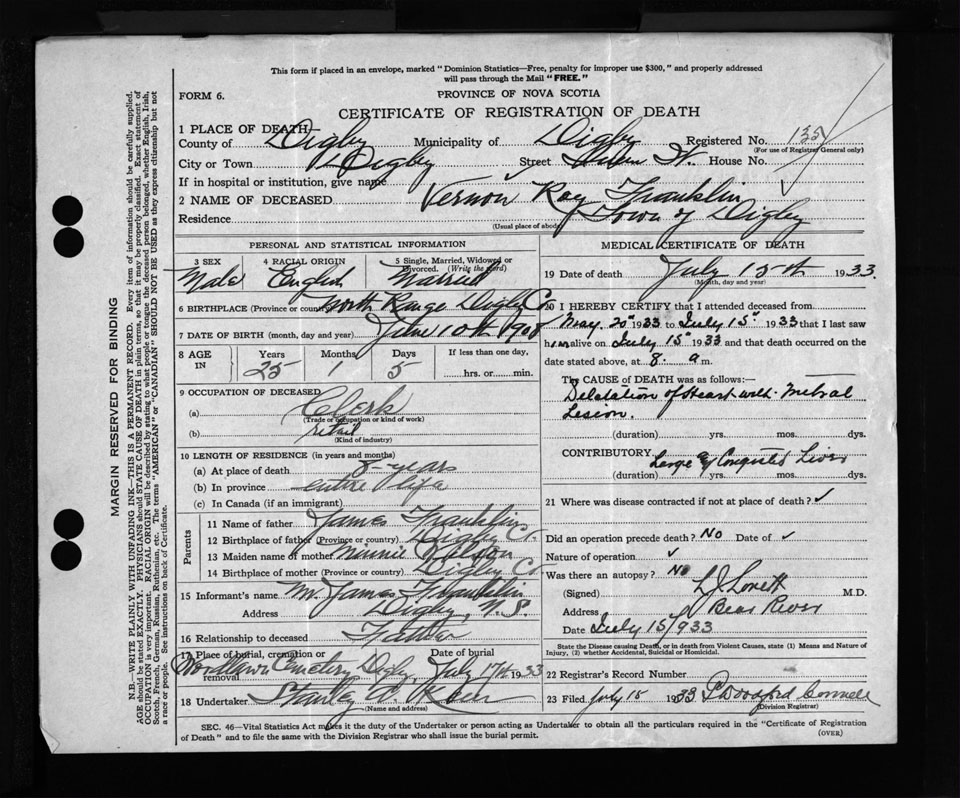 This form if placed in an envelope, marked "Dominion Statistics—Free, penalty for improper use $300," and properly addressed
will pass through the Mail "FREE."
FORM 6.
PROVINCE OF NOVA SCOTIA
CERTIFICATE OF REGISTRATION OF DEATH
1 PLACE OF DEATH
County of Digby Municipality of Digby Registered No. 135
(For use of Registrar General only)
City or Town Digby Street Queen St. House No.
If in hospital or institution, give name
2 NAME OF DECEASED Vernon Ray Franklin
Residence Town of Digby
(Usual place of abode)
PERSONAL AND STATISTICAL INFORMATION
3 SEX 4 RACIAL ORIGIN 5 Single, Married, Widowed or
Divorced. (Write the word)
Male English Married
6 BIRTHPLACE (Province or country) North Range Digby Co.
7 DATE OF BIRTH (month, day and year) June 10th 1908
8 AGE IN Years Months Days If less than one day,
25 1 5 hrs. or min.
9 OCCUPATION OF DECEASED
(a) Clerk
(Trade or occupation or kind of work)
(b) retail
(Kind of industry)
10 LENGTH OF RESIDENCE (in years and months)
(a) At place of death 8 years
(b) In province entire life
(c) In Canada (if an immigrant)
Parents
11 Name of father James Franklin
12 Birthplace of father (Province or country) Digby Co.
13 Maiden name of mother Minnie
14 Birthplace of mother (Province or country) Digby Co.
15 Informant's name Mr. James Franklin
Address Digby, N.S.
16 Relationship to deceased Father
17 Place of burial, cremation or removal Date of burial
Cemetery Digby July 17th 1933
18 Undertaker Stanley
(Name and address)
MEDICAL CERTIFICATE OF DEATH
19 Date of death July 15th 1933.
(Month, day and year)
20 I HEREBY CERTIFY that I attended deceased from
May. 20th 1933 to July 15th 1933 that I last saw
him alive on July 15th 1933 and that death occurred on the
date stated above, at 8. a m.
The CAUSE OF DEATH was as follows:—
Dilatation of Heart with Mitral
Lesion.
(duration) yrs. mos. dys.
CONTRIBUTORY Large & Congested Liver
(duration) yrs. mos. dys.
21 Where was disease contracted if not at place of death? ✓
Did an operation precede death? No Date of ✓
Nature of operation ✓
Was there an autopsy? No
(Signed) L J Lovett M.D.
Address Bear River
Date July 15/933
State the Disease causing Death, or in death from Violent Causes, state (1) Means and Nature of
Injury, (2) whether Accidental, Suicidal or Homicidal.
22 Registrar's Record Number
23 Filed July 15 1933
(Division Registrar)
SEC. 46—Vital Statistics Act makes it the duty of the Undertaker or person acting as Undertaker to obtain all the particulars required in the "Certificate of Registration
of Death" and to file the same with the Division Registrar who shall issue the burial permit.
(OVER)
MARGIN RESERVED FOR BINDING
N.B.—WRITE PLAINLY WITH UNFADING INK—THIS IS A PERMANENT RECORD. Every item of information should be carefully supplied.
AGE should be stated EXACTLY. PHYSICIANS should STATE CAUSE OF DEATH in plain terms, so that it may be properly classified. Exact statement of
OCCUPATION is very important. RACIAL ORIGIN will be described by stating to what people or tongue the deceased person belonged, whether English, Irish,
Scotch, French, German, Russian, Ruthenian, etc. The terms "AMERICAN" or "CANADIAN" SHOULD NOT BE USED as they express citizenship but not
a race or people. See instructions on back of Certificate.